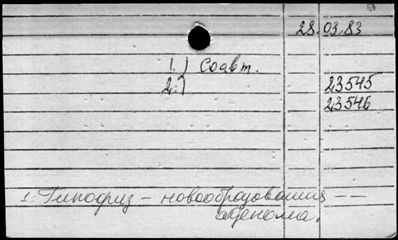 28.03.83
1.) Соавт.
2.) 23545
23546
1. Гипофиз - новообразования --
аденома.